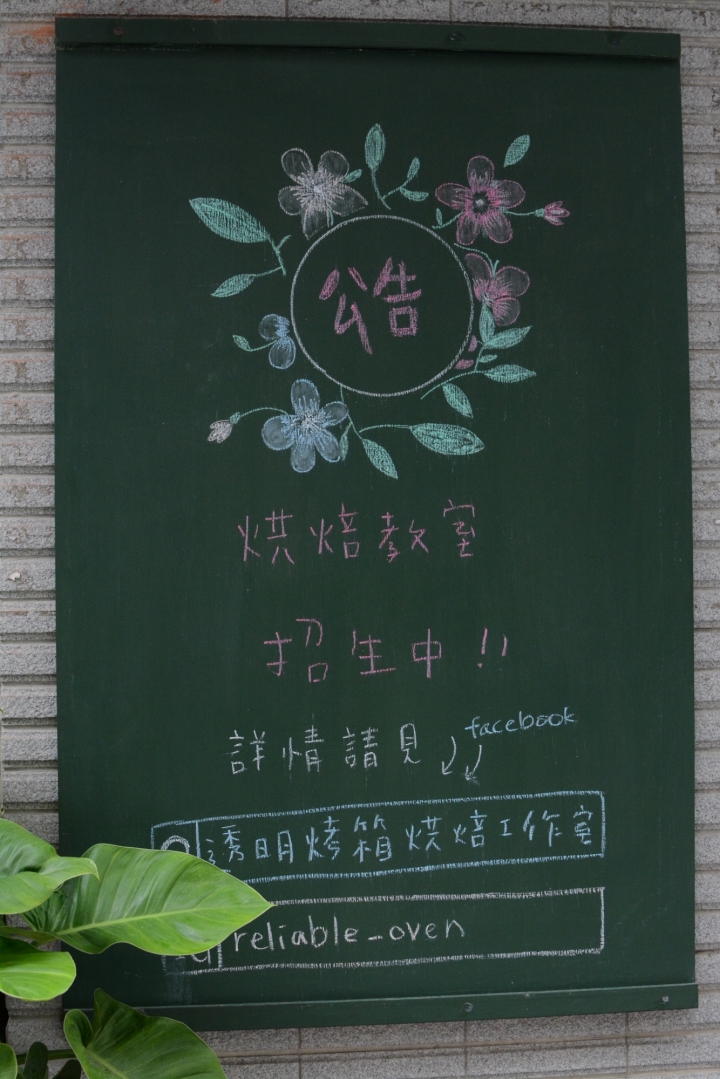 公告
烘焙教室
招生中!!
詳情請見
facebook
透明烤箱烘焙工作室
reliable_oven